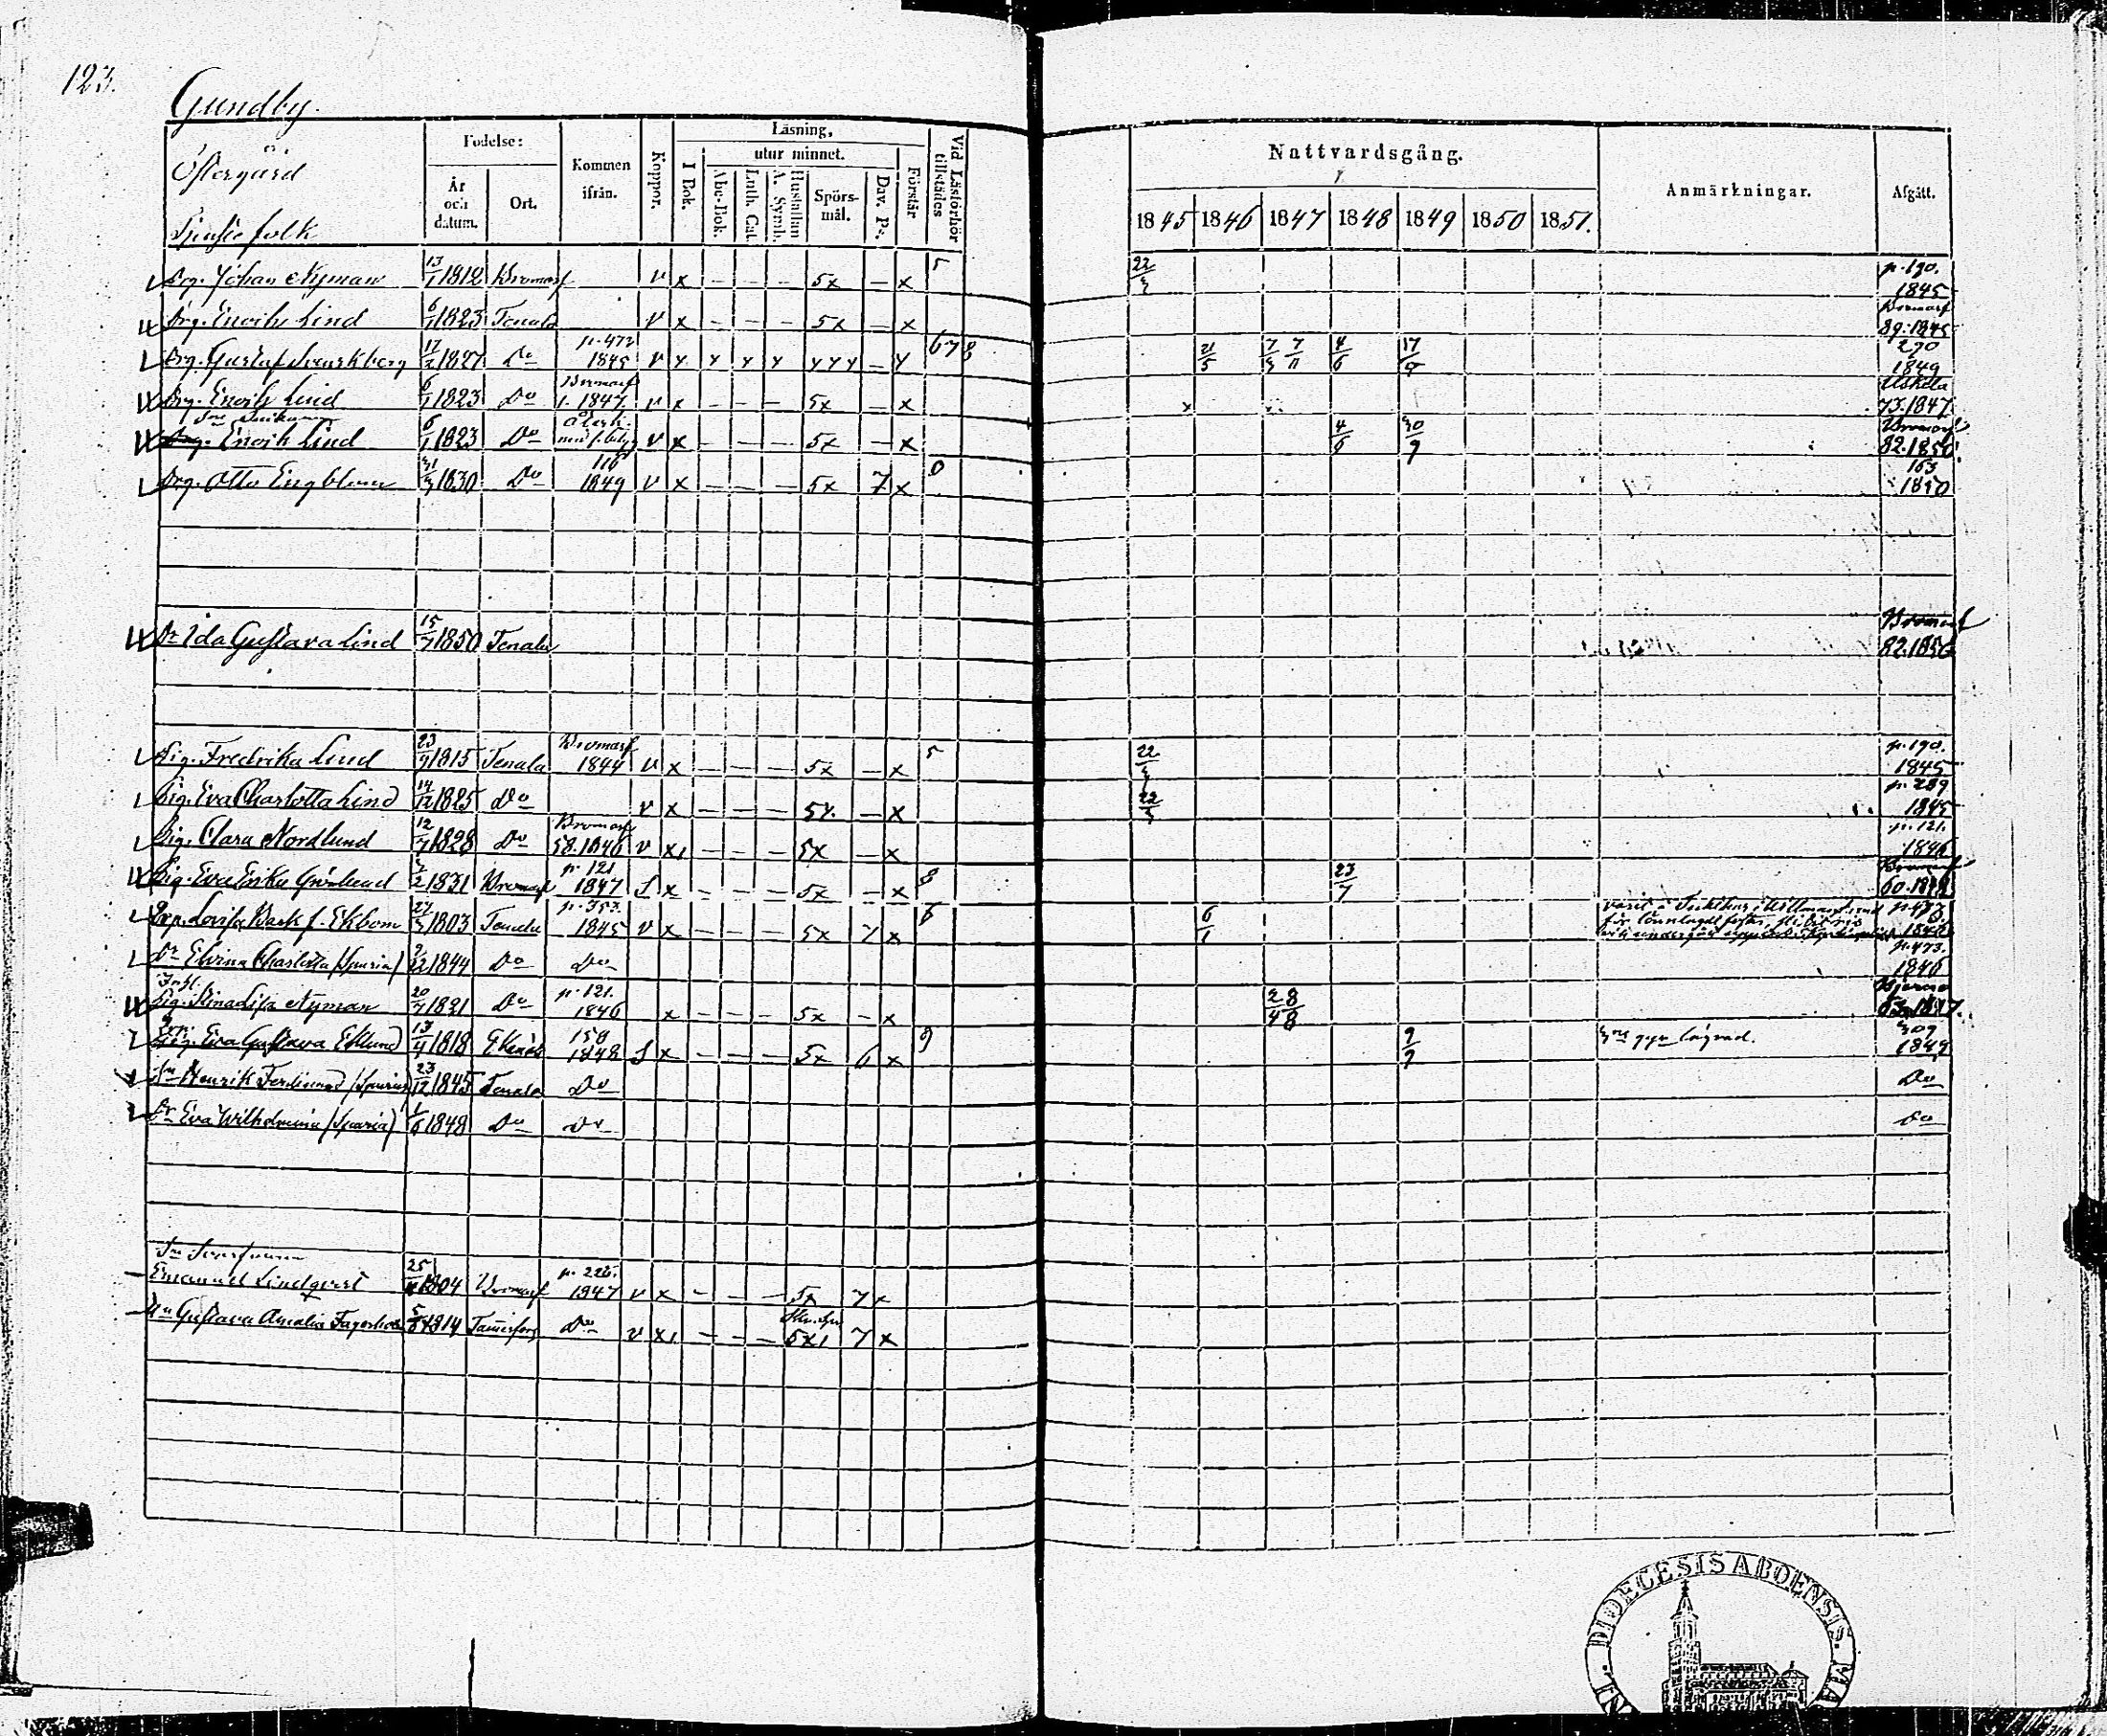 123.
Gundby.
Östergård
Tjenstefolk
Födelse:
År och datum.
Ort.
Kommen ifrån.
Koppor.
Läsning,
I Bok.
utur minnet.
Abc-Bok.
Luth. Cat.
A. Symb.
Hustaflan
Spörsmål.
Dav. Ps.
Förstår
Vid Läsförhör tillstädes
Nattvardsgång.
1845 1846 1847 1848 1849 1850 1851.
Anmärkningar.
Afgått.
Drg. Johan Nyman 13/1 1812 Bromarf v x - - - 5x - x 5 22/3 p. 190. 1845
Drg. Enoch Lind 6/1 1823 Tenala v x - - - 5x - x Bromarf 89. 1845
Drg. Gustaf Svenskberg 17/2 1827 Do p. 472 1845 v x x x x x x x - x 6 7 8 21/5 7/3 7/11 4/6 17/9 290 1849
Drg. Enoch Lind 6/1 1823 Do Bromarf 1. 1847 v x - - - 5x - x Uskela 73. 1847
Drg. Enoch Lind 6/1 1823 Do v x - - - 5x - x 4/6 30/9 Bromarf 82. 1850
Drg. Otto Engblom 31/3 1830 Do 116 1849 v x - - - 5x 7 x 0 163 1850
Dr Ida Gustava Lind 15/7 1850 Tenala Bromarf 82. 1850
Pig. Fredrika Lind 23/9 1815 Tenala Bromarf 1844 v x - - - 5x - x 5 22/3 p. 190. 1845
Pig. Eva Charlotta Lind 14/12 1825 Do v x - - - 5x - x 22/3 p. 289 1845
Pig. Clara Nordlund 12/7 1828 Do Bromarf 58. 1846 v x - - - 5x - x p. 121. 1846
Pig. Eva Erika Grönlund 3/2 1831 Bromarf p. 121 1847 s x - - - 5x - x 8 23/7 Bromarf 60. 1848
Lovisa Back f. Ekbom 1803 Tenala p. 353. 1845 v x - - - 5x 7 x 6 6/1 varit å
Dr Elvina Charlotta (Spuria) 2/12 1844 Do Do p. 473. 1846
Pig. Nyman 20/7 1821 Do p. 121. 1846 x - - - 5x - x 28/4 8
Eva Gustava Eklund 13/9 1818 Ekenäs 158 1848 s x - - - 5x 6 x 9 9/9 3ne ggr lägrad. 309 1849
Sn Henrik Ferdinand (Spurius) 23/12 1845 Tenala Do Do
Dr Eva Wilhelmina (Spuria) 1/6 1848 Do Do Do
Emanuel Lindqvist 25 1804 Bromarf p. 226. 1847 v x - - - 5x 7 x
Hu Gustava Amalia Fagerholm 5/8 1814 Tammerfors Do v x - - - 5x 7 x
DIOECESIS ABOENSIS. MA